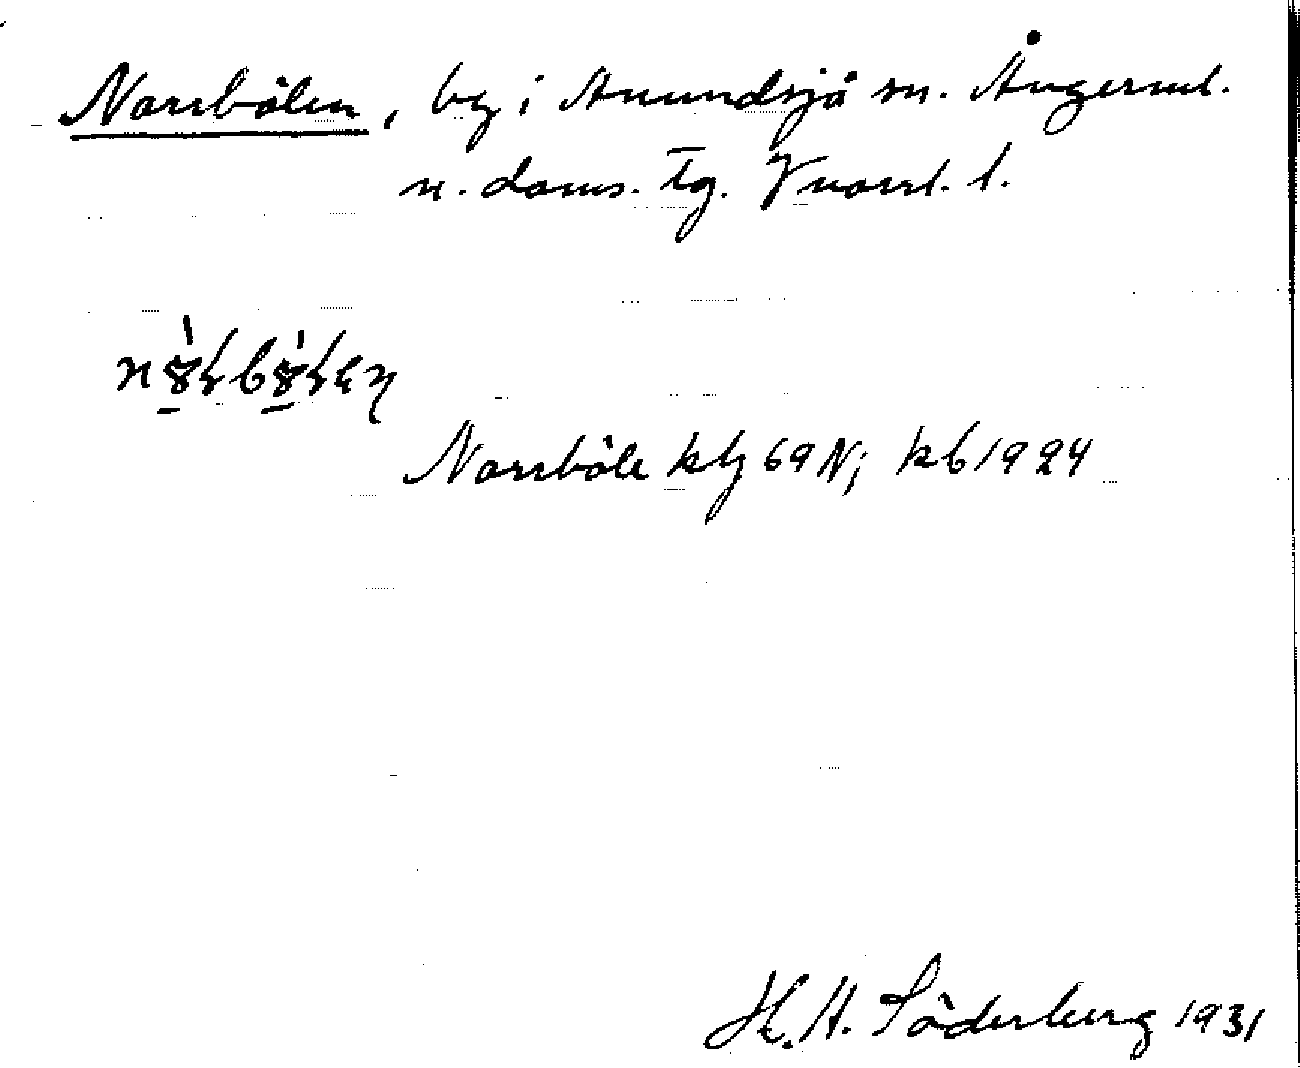 Norrbölen, by i Anundsjö sn. Ångerml.
n. doms. Tg. V norrl. l.
Norrböle kbg 69 N; kb 1924
H. H. Söderberg 1931